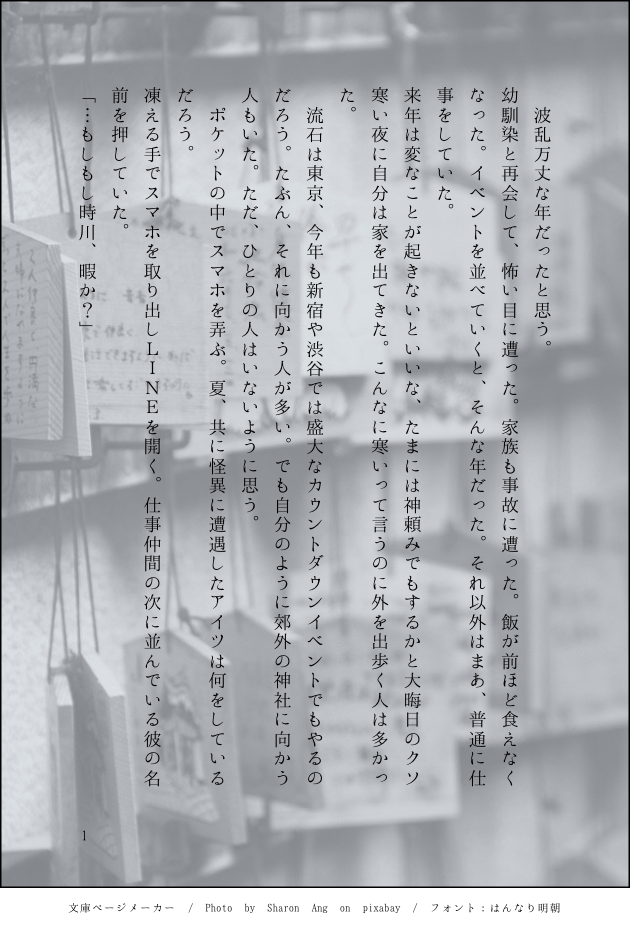 波乱万丈な年だったと思う。
幼馴染と再会して、怖い目に遭った。家族も事故に遭った。飯が前ほど食えなく
なった。イベントを並べていくと、そんな年だった。それ以外はまあ、普通に仕
事をしていた。
来年は変なことが起きないといいな、たまには神頼みでもするかと大晦日のクソ
寒い夜に自分は家を出てきた。こんなに寒いって言うのに外を出歩く人は多かっ
た。
流石は東京、今年も新宿や渋谷では盛大なカウントダウンイベントでもやるの
だろう。たぶん、それに向かう人が多い。でも自分のように郊外の神社に向かう
人もいた。ただ、ひとりの人はいないように思う。
ポケットの中でスマホを弄ぶ。夏、共に怪異に遭遇したアイツは何をしている
だろう。
凍える手でスマホを取り出しLINEを開く。仕事仲間の次に並んでいる彼の名
前を押していた。
「…もしもし時川、暇か？」
1
文庫ページメーカー / Photo by Sharon Ang on pixabay / フォント：はんなり明朝